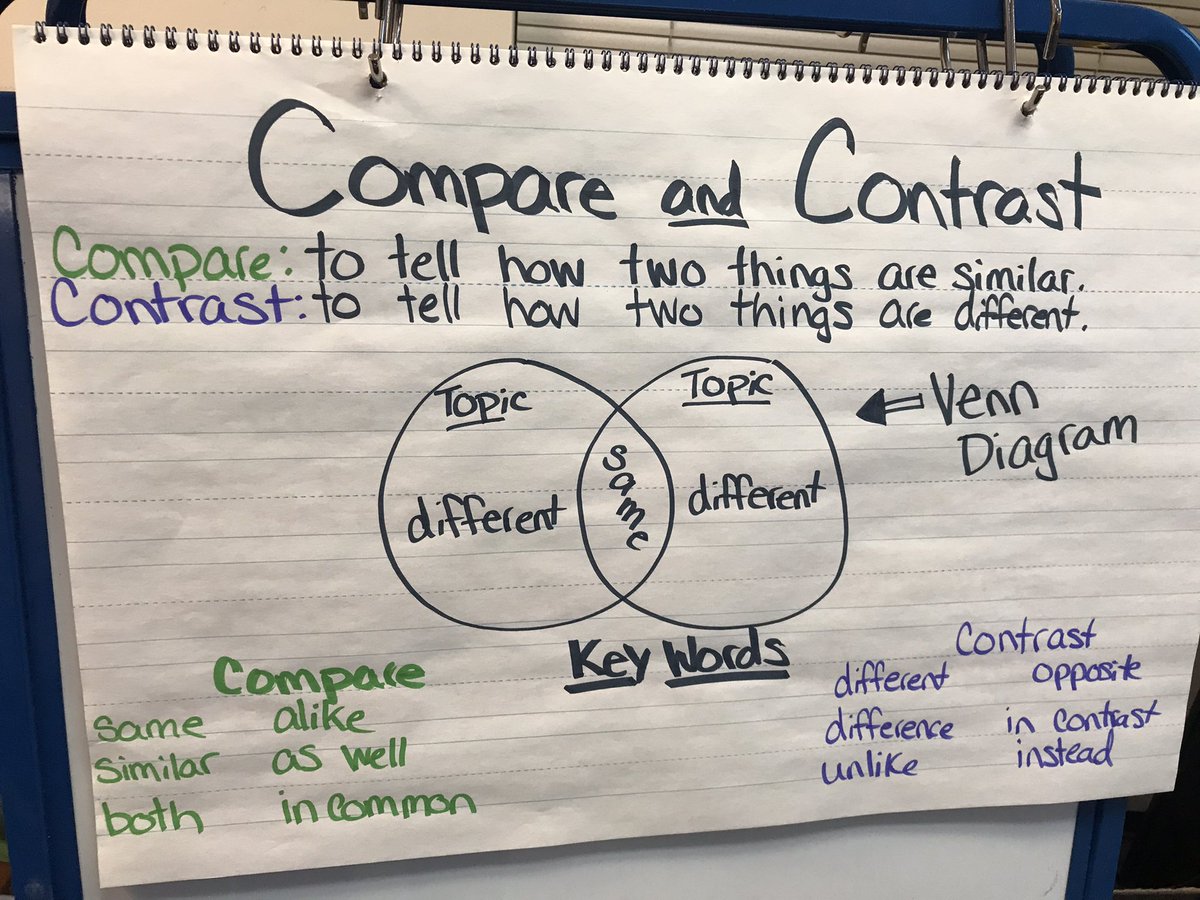 Compare and Contrast
Compare: to tell how two things are similar.
Contrast: to tell how two things are different.
Topic
Topic
different
same
different
Venn
Diagram
Key Words
Compare
same alike
similar as well
both in common
Contrast
different opposite
difference in contrast
unlike instead